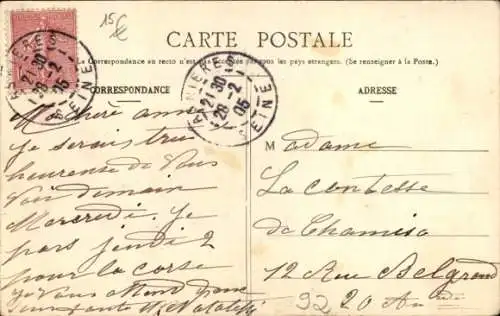 15€
CARTE POSTALE
La Correspondance au recto n'est pas acceptée par tous les pays étrangers. (Se renseigner à la Poste.)
CORRESPONDANCE
ADRESSE
ASNIERES
21 30
28 - 2
05
SEINE
ASNIERES
21 30
28 - 2
05
SEINE
Ma chère amie
je serais très
heureuse de vous
voir demain
Mercredi. Je
pars jeudi 2
pour la Corse
Je vous attend donc
Madame
La Comtesse
de Chamisso
12 Rue Belgrand
20 Arr